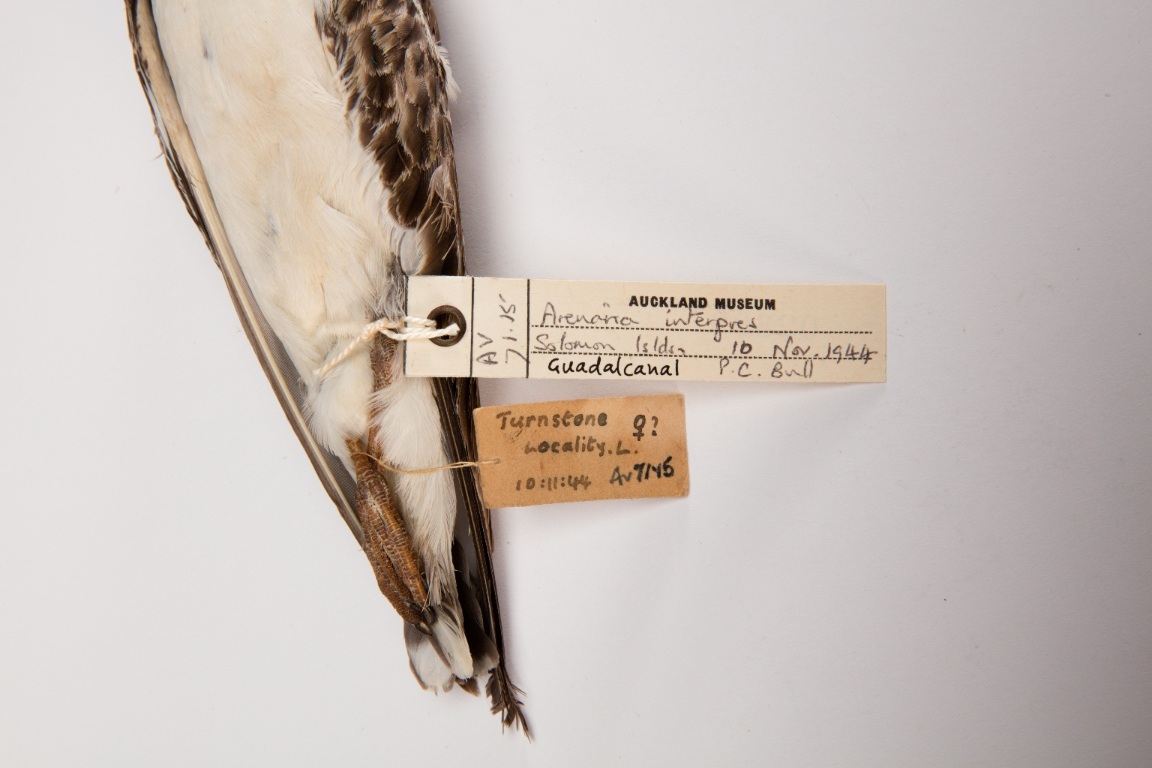 AUCKLAND MUSEUM
AV
71.15
Arenaria interpres
Solomon Islds. 10 Nov. 1944
Guadalcanal P.C. Bull
Turnstone ♀?
Locality. L.
10:11:44 Av